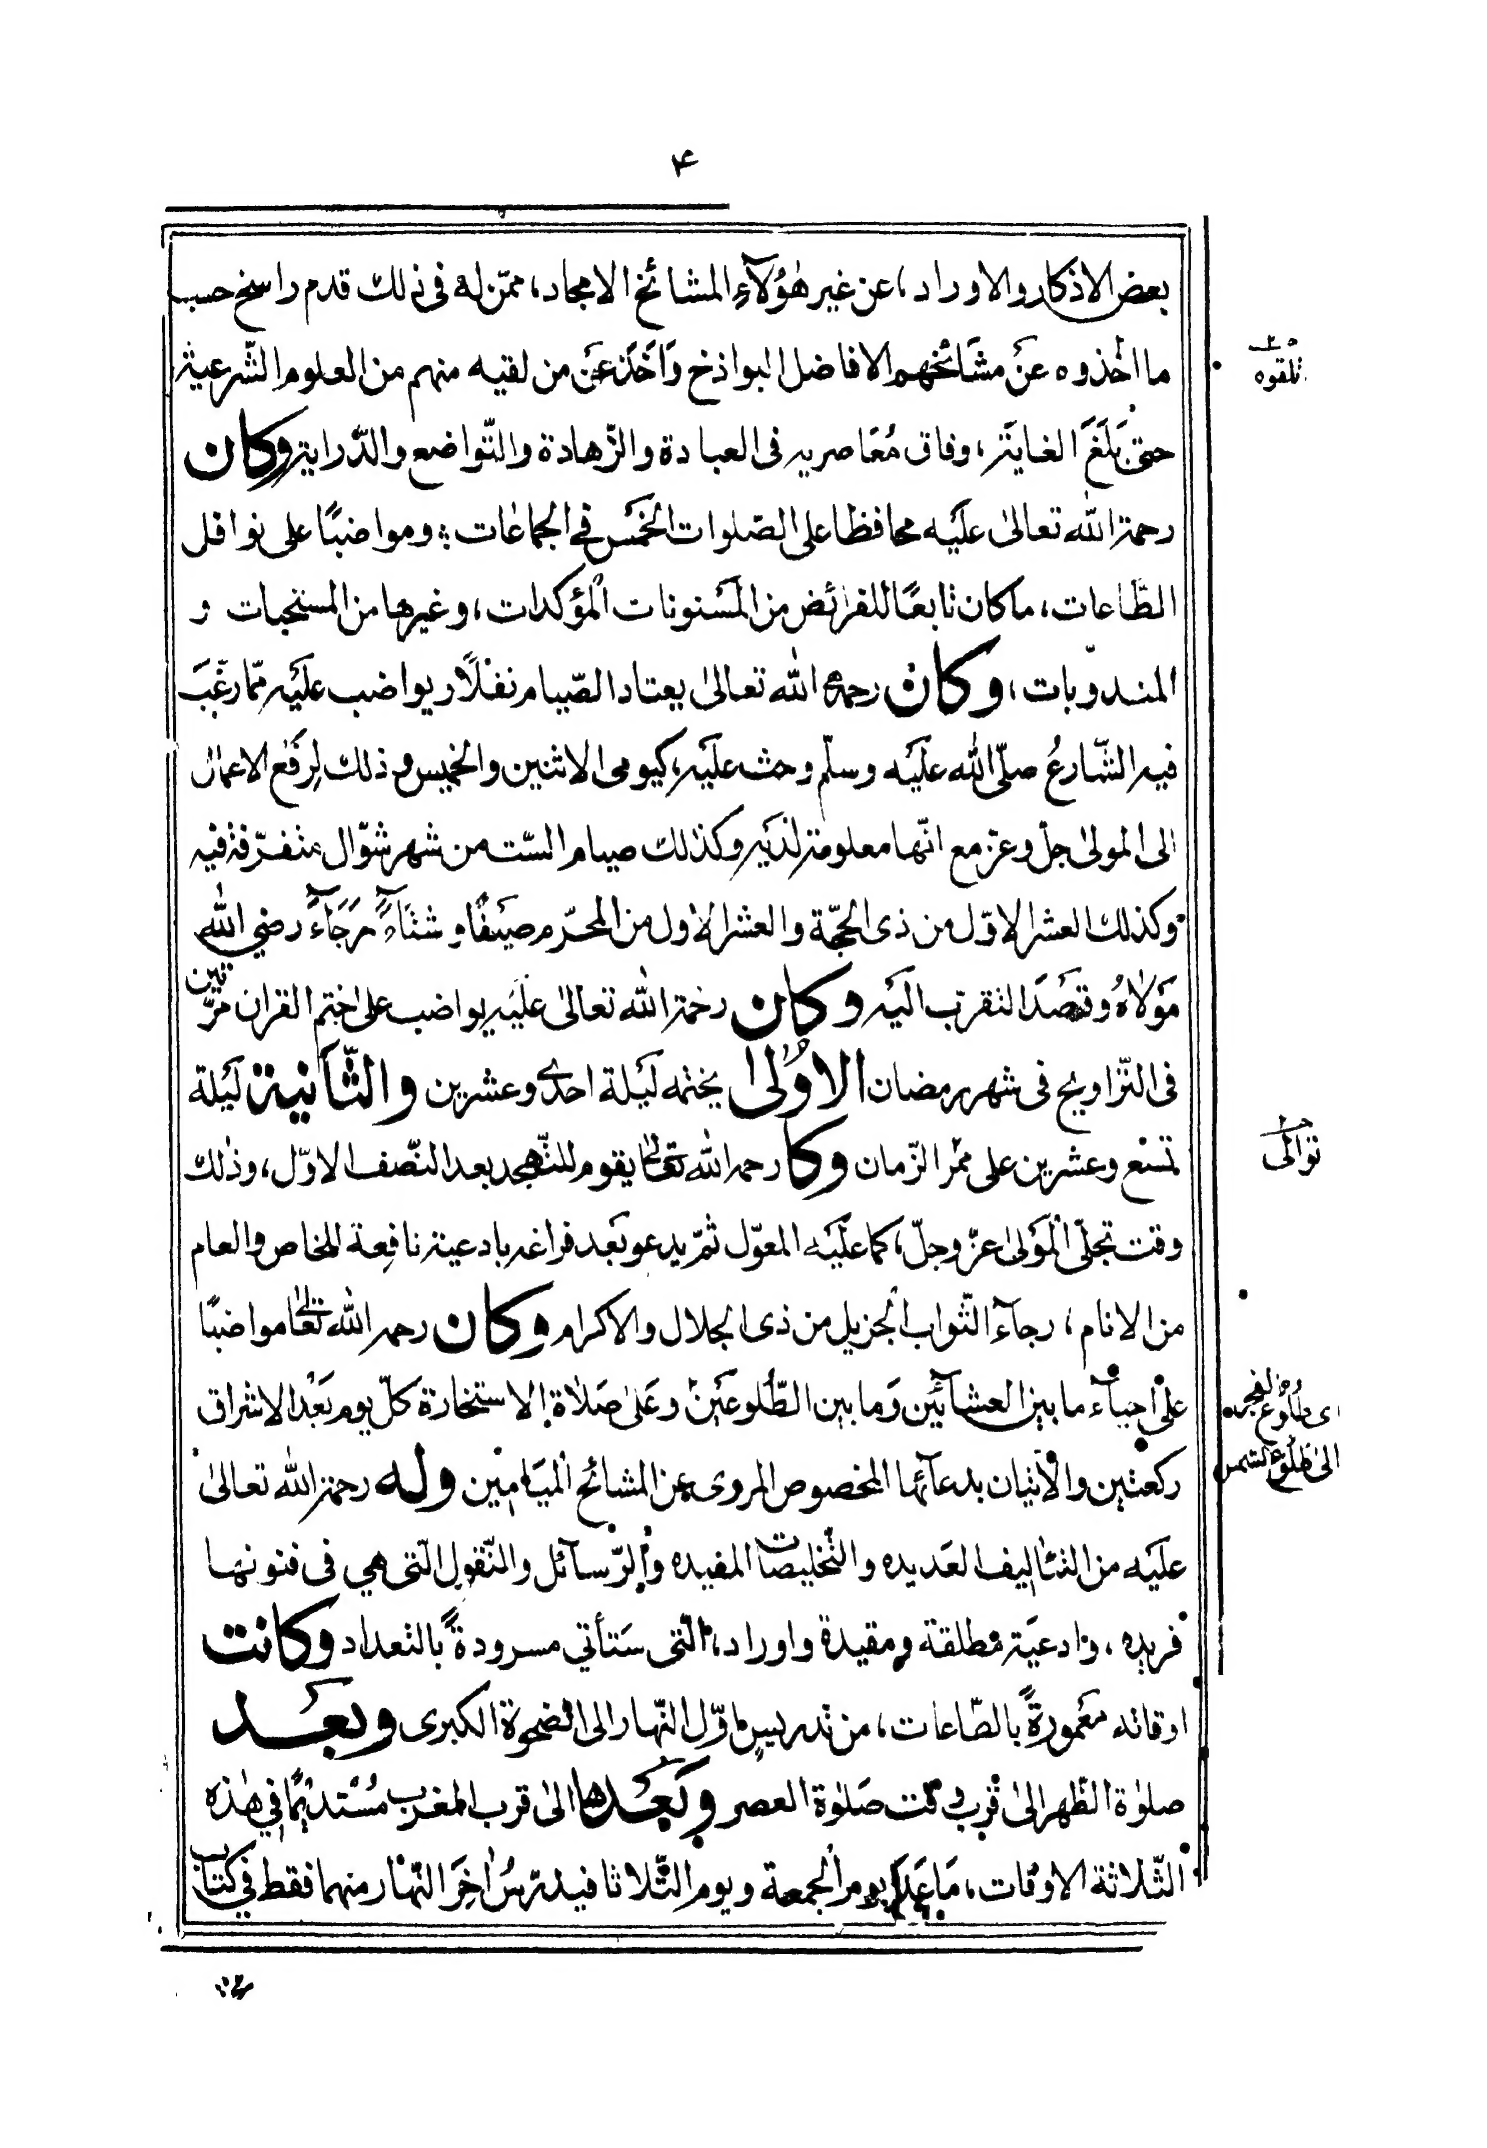 ۴
بعض الاذكار والاوراد، عن غير هٰؤلآءِ المشائخ الامجاد، ممّن له فى ذلك قدم راسخ حسب
ما اخذوه عن مشائخهم الافاضل البواذخ وَاَخَذَ عَن من لقيه منهم من العلوم الشّرعية
حتىٰ بَلَغَ الغاية، وفاق مُعَاصريه فى العبادة والزّهادة والتّواضع والدّراية وكان
رحمة الله تعالىٰ عليه محافظا على الصّلوات الخمس فى الجماعات؛ ومواضبًا على نوافل
الطّاعات، ما كان تابعًا للفرائض من المسنونات المؤكدات، وغيرها من المستحبات و
المندوبات، وكان رحمه الله تعالىٰ يعتاد الصّيام نفلًا ويواضب عليه ممّا رغّبَ
فيه الشّارعُ صلّى الله عليه وسلّم وحث عليه، كيومى الاثنين والخميس وذلك لِرَفع الاعمال
الى المولىٰ جلّ وعزّ مع انّها معلومة لديه وكذلك صيام السّت من شهر شوّال متفرّقة فيه
وكذلك العشر الاوّل من ذى الحجّة والعشر الاول من المحرّم صيفًا وشتاءً رَجَاءً رضي الله
مَولاهُ وقصدَ التقرّب اليه وكان رحمة الله تعالىٰ عليه يواضب على ختم القران مرّتين
فى التّراويح فى شهر رمضان الاُولىٰ يختمه ليلة احدى وعشرين والثّانية ليلة
تسع وعشرين على ممّر الزّمان وكا رحمه الله تعالىٰ يقوم للتّهجد بعد النّصف الاوّل، وذلك
وقت تجلّى المَولىٰ عزّ وجلّ، كما عليه المعوّل ثمّ يدعو بَعد فراغه بادعية نافِعة للخاص والعام
من الانام، رجآء الثّواب الجزيل من ذى الجلال والاكرام وكان رحمه الله تعالىٰ مواضبًا
على احياء ما بين العشائين وَما بين الطّلوعَين وعَلىٰ صَلاة الاستخارة كلّ يوم بَعْد الاشراق
ركعتين والاتيان بدعائها المخصوص المروى عن المشائخ الميامين وله رحمة الله تعالىٰ
عليه من التئاليف العَديده والتّخليصات المفيده والرّسآئل والنّقول الّتى هي فى فنونها
فريده، وادعيَة مطلقة ومقيدة واوراد، الّتى سَتأتي مسرودةً بالتعداد وكانت
اوقاته مَعمورةً بالطّاعات، من تدريسٍ اوّل النّهار الى الضحوة الكبرى وبعد
صلوٰة الظّهر الىٰ قربِ وقت صَلوٰة العصر وبَعْدها الىٰ قرب المغرب مُسْتديمًا فِي هٰذه
الثّلاثة الاوقات، مَا عَدَا يوم الجمعة ويوم الثّلاثا فيدرّسُ اٰخِرَ النّهار منهما فقط في كتاب
تلقوه
توالى
اى طلُوع الفجر
الىٰ طلُوع الشمس